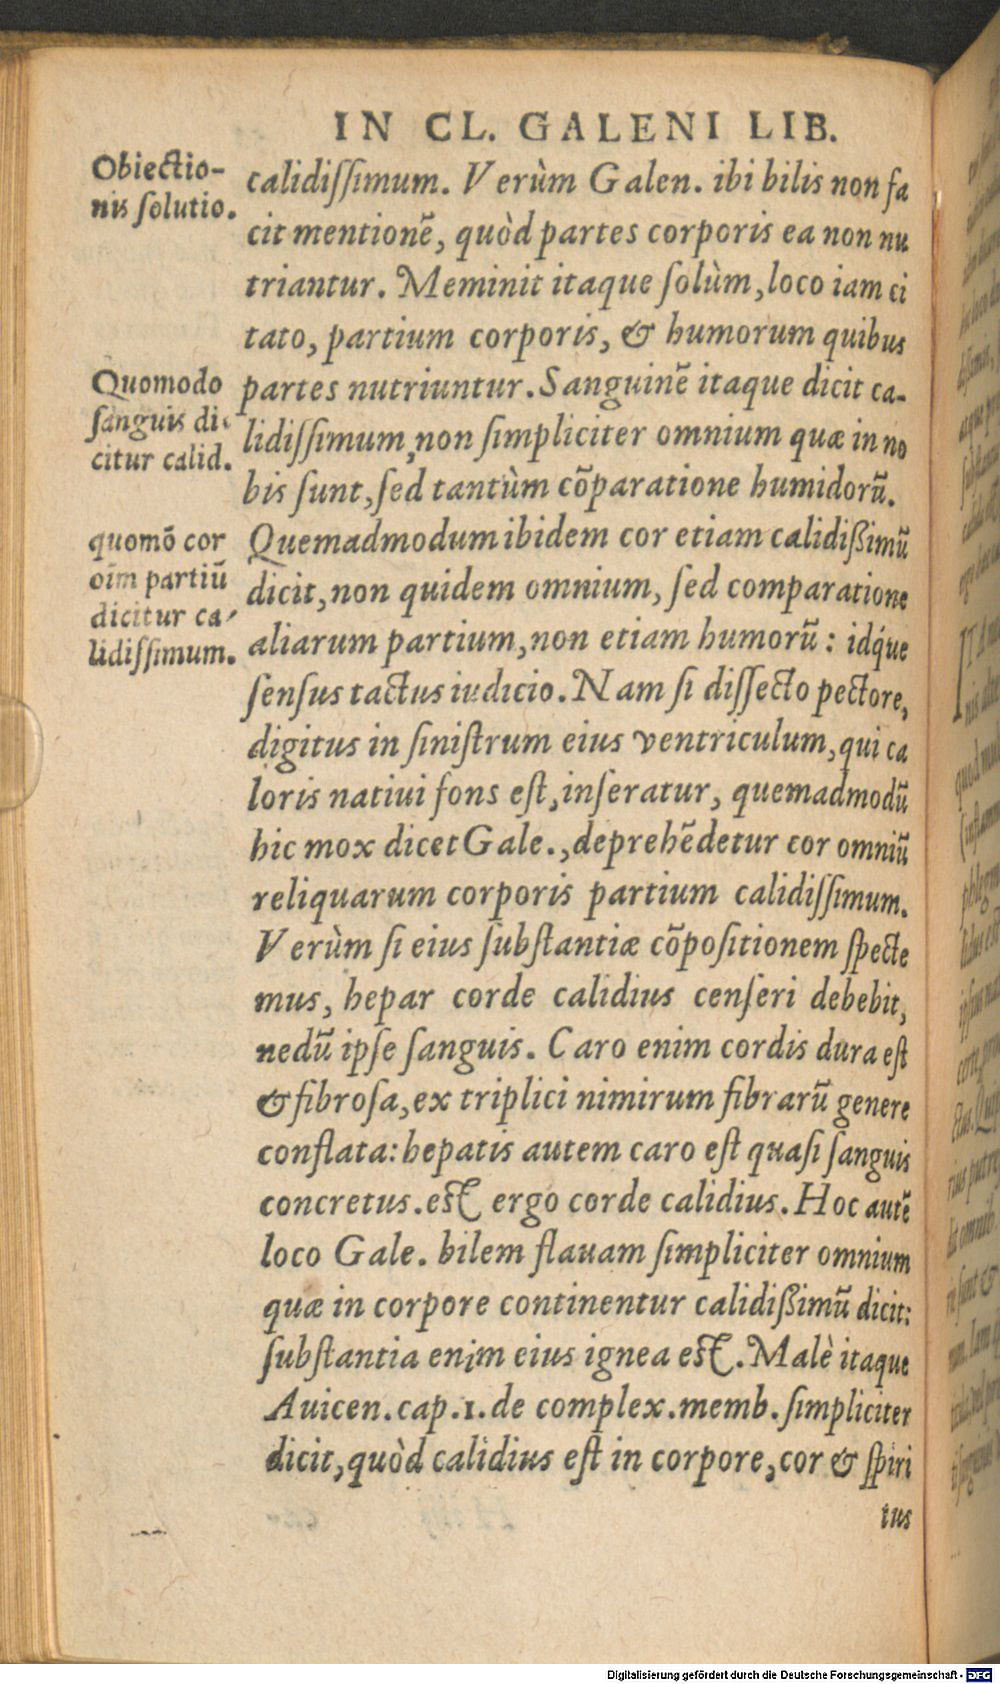 IN CL. GALENI LIB.
Obiectio-
nis ſolutio.
calidiſſimum. Verùm Galen. ibi bilis non fa
cit mentionē, quòd partes corporis ea non nu
triantur. Meminit itaque ſolùm, loco iam ci
tato, partium corporis, & humorum quibus
Quomodo
ſanguis di-
citur calid.
partes nutriuntur. Sanguinē itaque dicit ca-
lidiſſimum, non ſimpliciter omnium quæ in no
bis ſunt, ſed tantùm cōparatione humidorū.
quomō cor
oīm partiū
dicitur ca-
lidiſſimum.
Quemadmodum ibidem cor etiam calidißimū
dicit, non quidem omnium, ſed comparatione
aliarum partium, non etiam humorū: idq́ue
ſenſus tactus iudicio. Nam ſi diſſecto pectore,
digitus in ſiniſtrum eius ventriculum, qui ca
loris natiui fons eſt, inſeratur, quemadmodū
hic mox dicet Gale., deprehēdetur cor omniū
reliquarum corporis partium calidiſſimum.
Verùm ſi eius ſubſtantiæ cōpoſitionem ſpecte
mus, hepar corde calidius cenſeri debebit,
nedū ipſe ſanguis. Caro enim cordis dura eſt
& fibroſa, ex triplici nimirum fibrarū genere
conflata: hepatis autem caro eſt quaſi ſanguis
concretus. eſt ergo corde calidius. Hoc autē
loco Gale. bilem flauam ſimpliciter omnium
quæ in corpore continentur calidißimū dicit:
ſubſtantia enim eius ignea eſt. Malè itaque
Auicen. cap. 1. de complex. memb. ſimpliciter
dicit, quòd calidius eſt in corpore, cor & ſpiri
tus
Digitalisierung gefördert durch die Deutsche Forschungsgemeinschaft - DFG